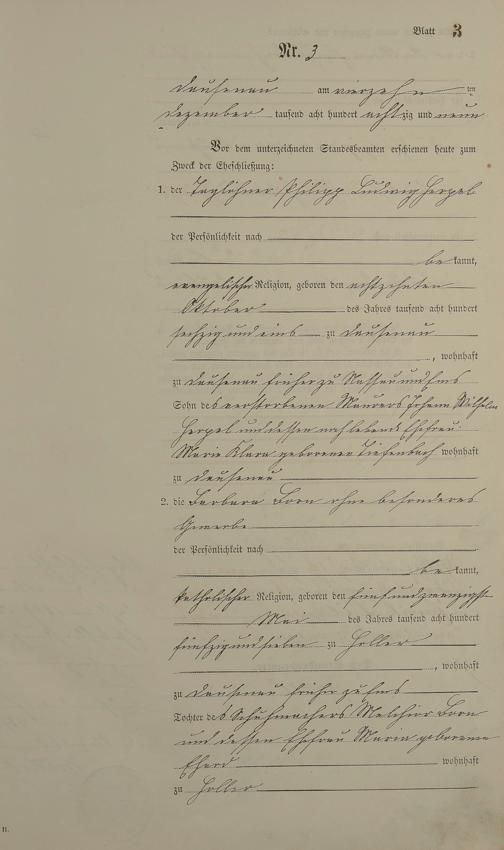 Blatt 3
Nr. 3
Dausenau am vierzehn ten
Dezember tausend acht hundert achtzig und neun
Vor dem unterzeichneten Standesbeamten erschienen heute zum
Zweck der Eheschließung:
1. der Taglöhner Philipp Ludwig Herpel
der Persönlichkeit nach
be kannt,
evangelischer Religion, geboren den achtzehnten
Oktober des Jahres tausend acht hundert
sechzig und eins zu Dausenau
, wohnhaft
zu Dausenau früher zu Nassau und Ems
Sohn des verstorbenen Maurers Johann Wilhelm
Herpel und dessen nachlebende Ehefrau
Marie Klara geborenen Tiefenbach wohnhaft
zu Dausenau
2. die Barbara Born ohne besonderes
Gewerbe
der Persönlichkeit nach
be kannt,
katholischer Religion, geboren den fünfundzwanzigst
Mai des Jahres tausend acht hundert
fünfzig und sieben zu Holler
, wohnhaft
zu Dausenau früher zu Ems
Tochter des Schuhmachers Melchior Born
und dessen Ehefrau Maria geborene
wohnhaft
zu Holler
II.